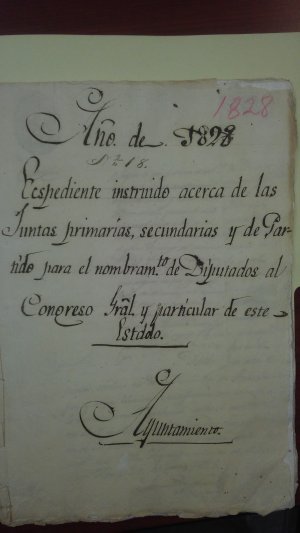 1828
Año. de 1828
N 18.
Ecspediente instruido acerca de las
Juntas primarias, secundarias y de Par-
tido para el nombram.to de Diputados al
Congreso Gral. y particular de este
Estado.
Ayuntamiento.